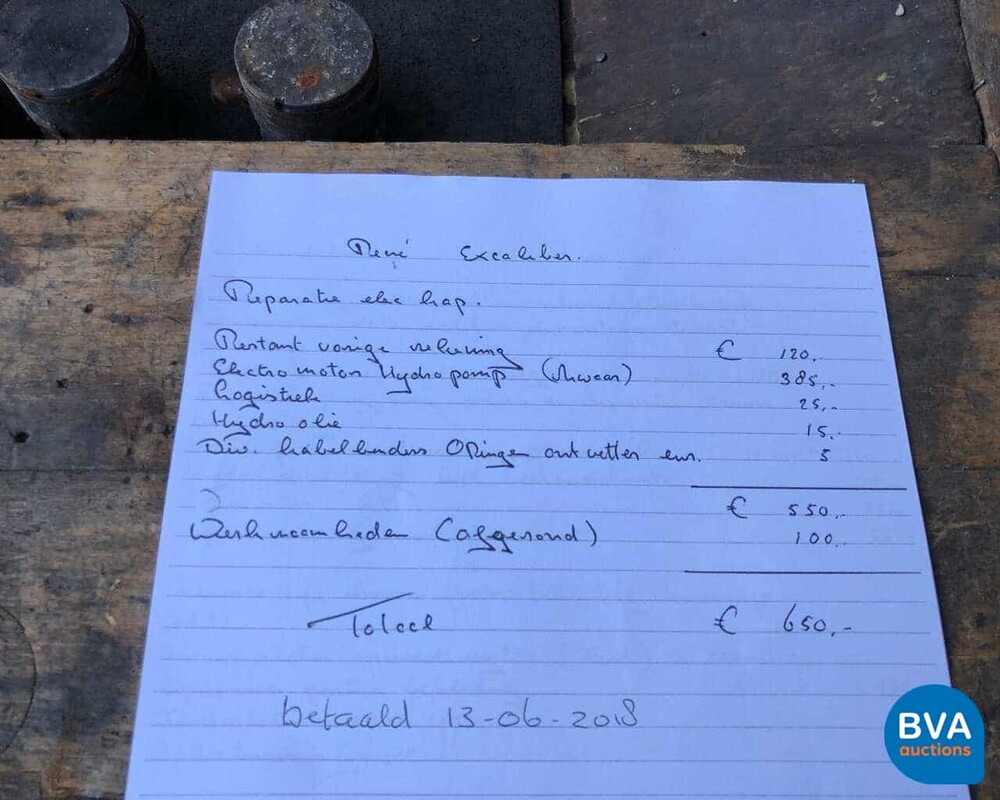 René Excaliber.
Reparatie elec klap.
Restant vorige rekening € 120,-
Electro motor Hydropomp (zwaar) 385,-
Logistiek 25,-
Hydro olie 15,-
Div. kabelbinders ORingen ontvetter enz. 5
€ 550,-
Werkzaamheden (afgerond) 100,-
Totaal € 650,-
betaald 13-06-2018
BVA
auctions